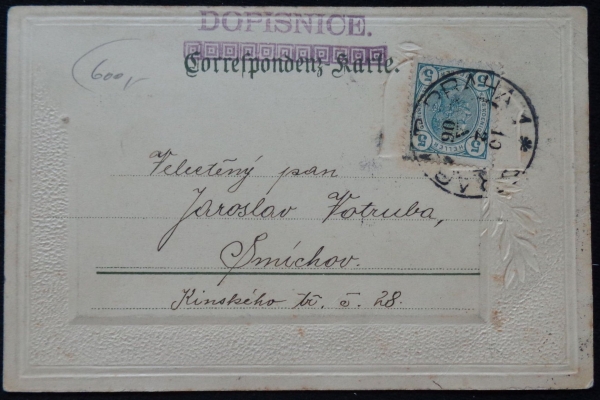 DOPISNICE.
Correspondenz-Karte.
600,-
5 5
PRAHA 1
13 2 06
PRAG
Velectěný pan
Jaroslav Votruba,
Smíchov.
Kinského tř. č. 28.